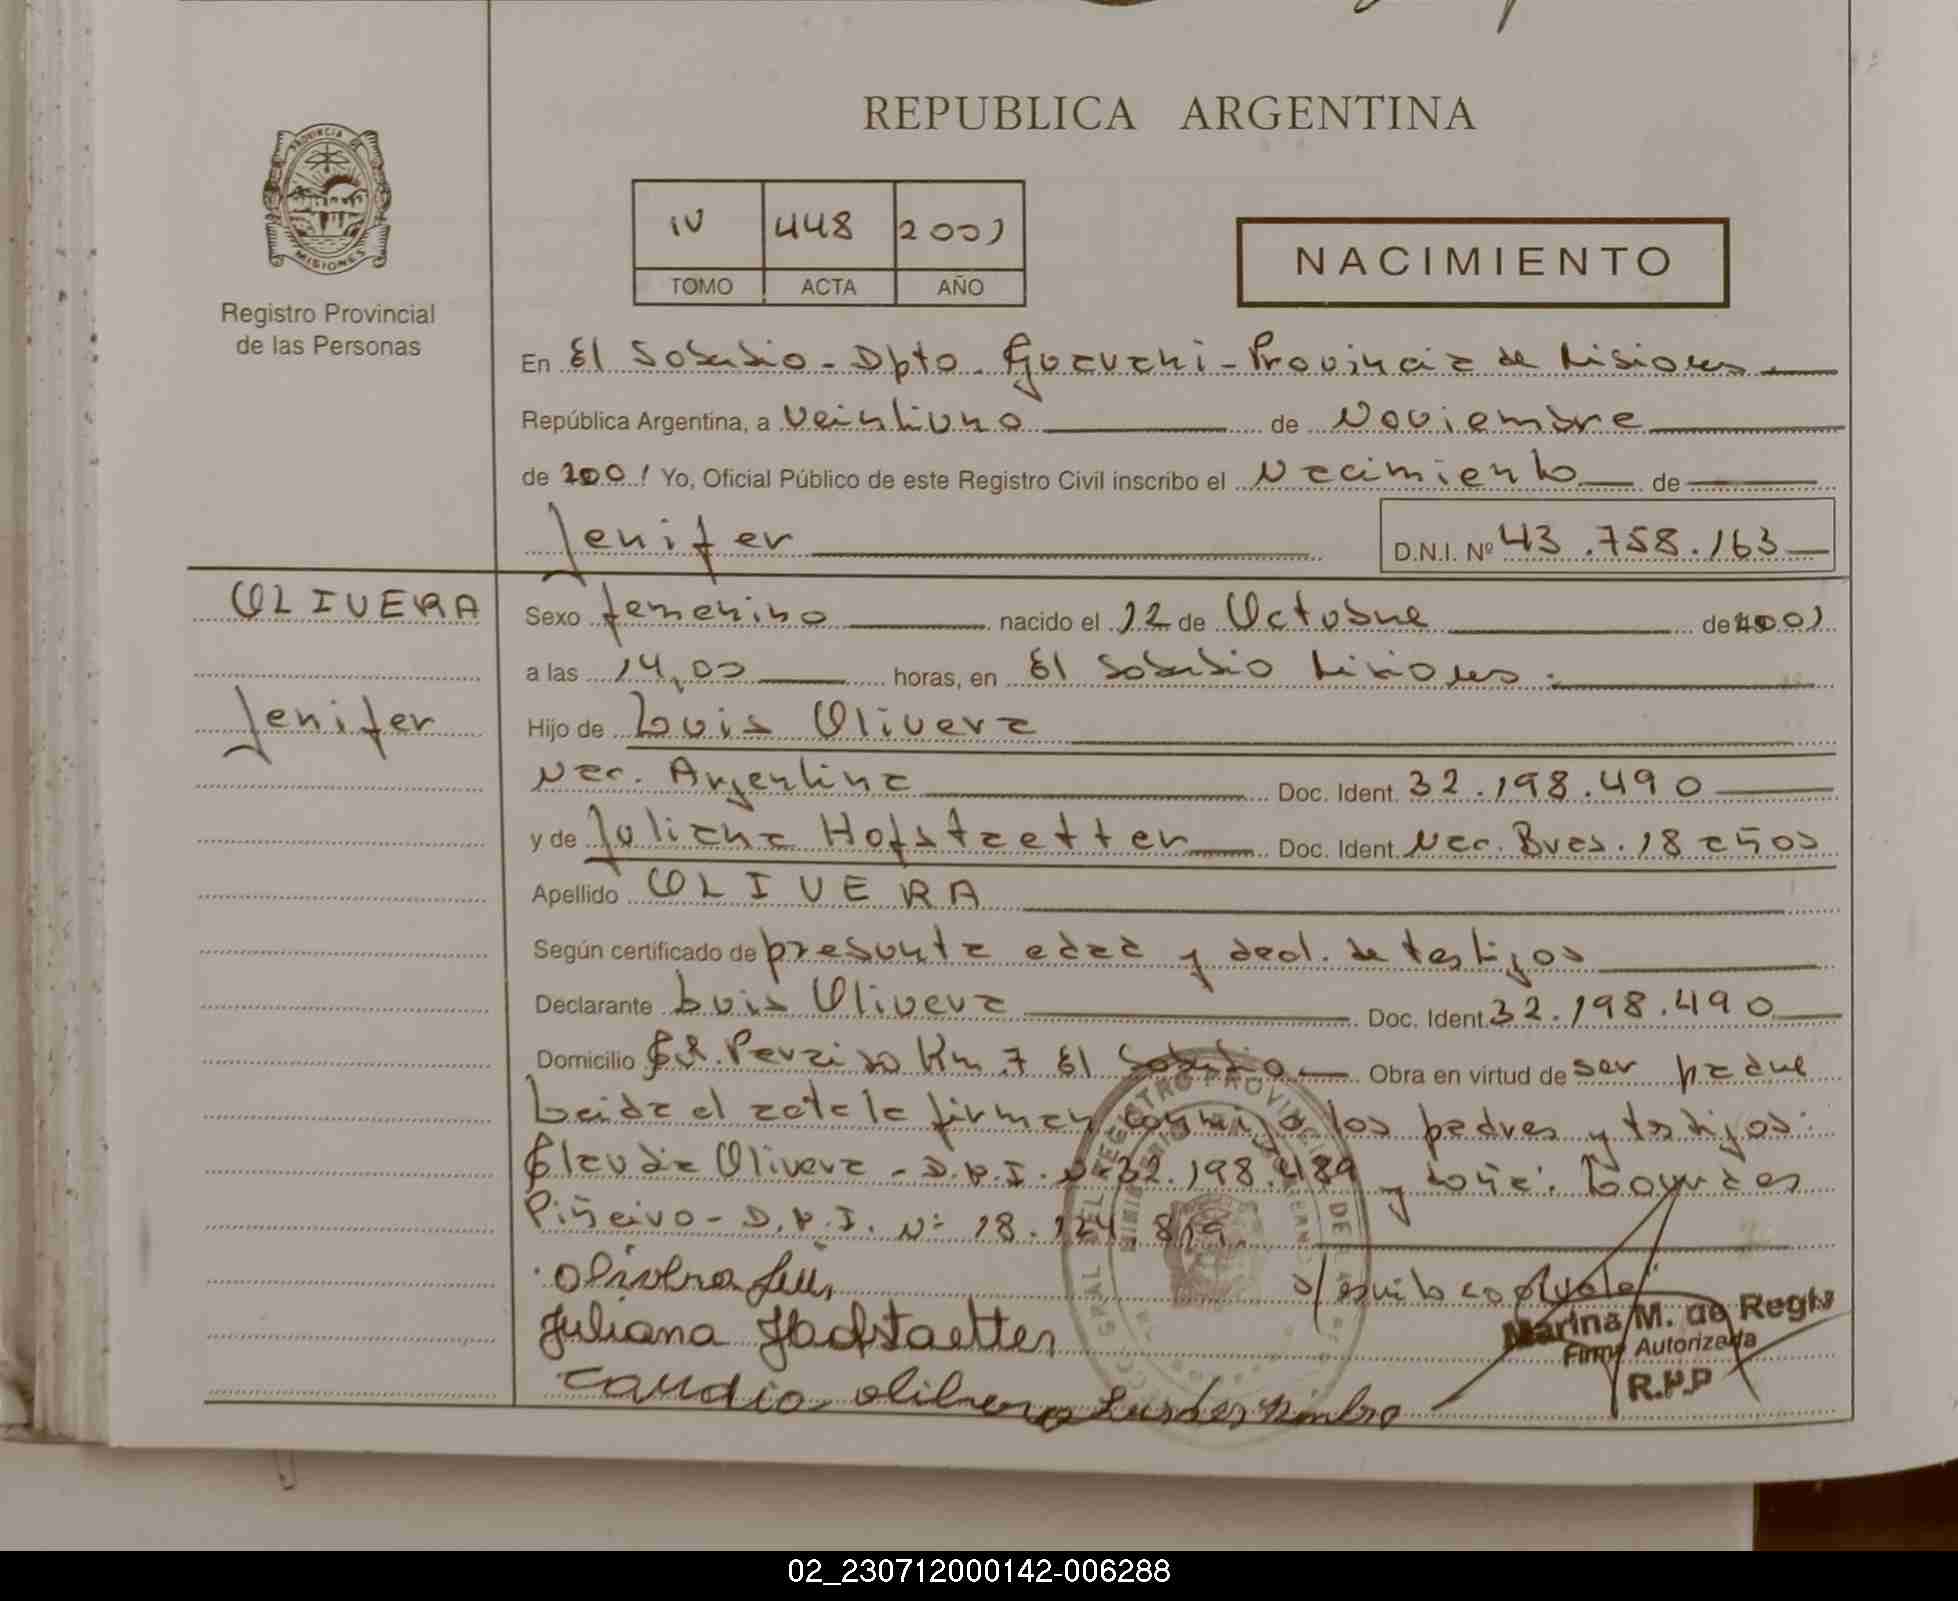 REPUBLICA ARGENTINA
PROVINCIA DE
MISIONES
Registro Provincial
de las Personas
IV 448 2001
TOMO ACTA AÑO
NACIMIENTO
En El Soberbio - Dpto. Guaraní - Provincia de Misiones.
República Argentina, a veintiuno de Noviembre
de 2001 Yo, Oficial Público de este Registro Civil inscribo el Nacimiento de
Jenifer D.N.I. Nº 43.758.163
OLIVERA
Jenifer
Sexo femenino nacido el 12 de Octubre de 2001
a las 14,00 horas, en El Soberbio Misiones.
Hijo de Luis Olivera
Nac. Argentina Doc. Ident. 32.198.490
y de Juliana Hofstaetter Doc. Ident. Nac. Bras. 18 años
Apellido OLIVERA
Según certificado de presunta edad y decl. de testigos
Declarante Luis Olivera Doc. Ident. 32.198.490
Domicilio Paraiso Km 7 El Soberbio Obra en virtud de ser padre
Leida el acta la firman conmigo los padres y testigos:
Claudia Olivera - D.N.I. Nº 32.198.489 y Lourdes
Piñeiro - D.N.I. Nº 18.124.819.
Olivera Luis
Juliana Hofstaetter
Marina M. de Regis
Firma Autorizada
R.P.P
02_230712000142-006288